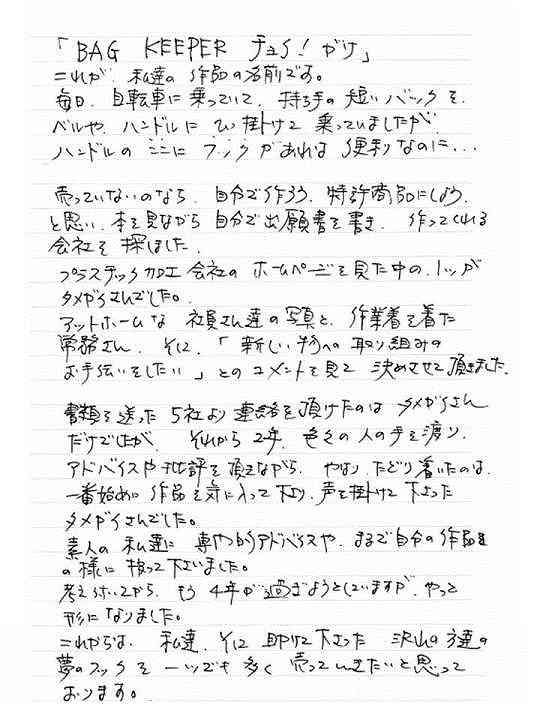 「BAG KEEPER チョイ!がけ」
これが、私達の作品の名前です。
毎日、自転車に乗っていて、持ち手の短いバックを、
ベルや、ハンドルにひっ掛けて乗っていましたが、
ハンドルのここにフックがあれば便利なのに...
売っていないのなら、自分で作ろう、特許商品にしよう、
と思い、本を見ながら自分で出願書を書き、作ってくれる
会社を探しました。
プラスチック加工会社のホームページを見た中の、1ッが
タメガイさんでした。
アットホームな社員さん達の写真と、作業着を着た
常務さん、そして、「新しい物への取り組みの
お手伝いをしたい」とのコメントを見て決めさせて頂きました。
書類を送った5社より連絡を頂けたのはタメガイさん
だけでしたが、それから2年、色々の人の手を渡り、
アドバイスや批評を頂きながら、やはりたどり着いたのは、
一番始めに作品を気に入って下さり、声を掛けて下さった
タメガイさんでした。
素人の私達に専門的アドバイスや、まるで自分の作品
の様に扱って下さいました。
考えついてから、もう4年が過ぎようとしていますが、やっと
形になりました。
これからは、私達、そして助けて下さった沢山の方達の
夢のフックを一ツでも多く売っていきたいと思って
おります。